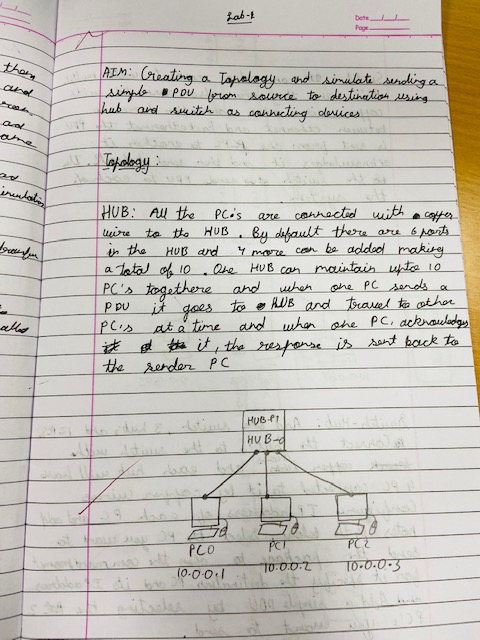 Lab-1
Date
Page
AIM: Creating a Topology and simulate sending a
simple PDU from source to destination using
hub and switch as connecting devices
Topology:
HUB: All the PC's are connected with copper
wire to the HUB. By default there are 6 ports
in the HUB and 4 more can be added making
a total of 10. One HUB can maintain upto 10
PC's togethere and when one PC sends a
PDU it goes to HUB and travel to other
PC's at a time and when one PC, acknowledges
it, the response is sent back to
the sender PC
HUB-PT
HUB-0
PC0 PC1 PC2
10.0.0.1 10.0.0.2 10.0.0.3